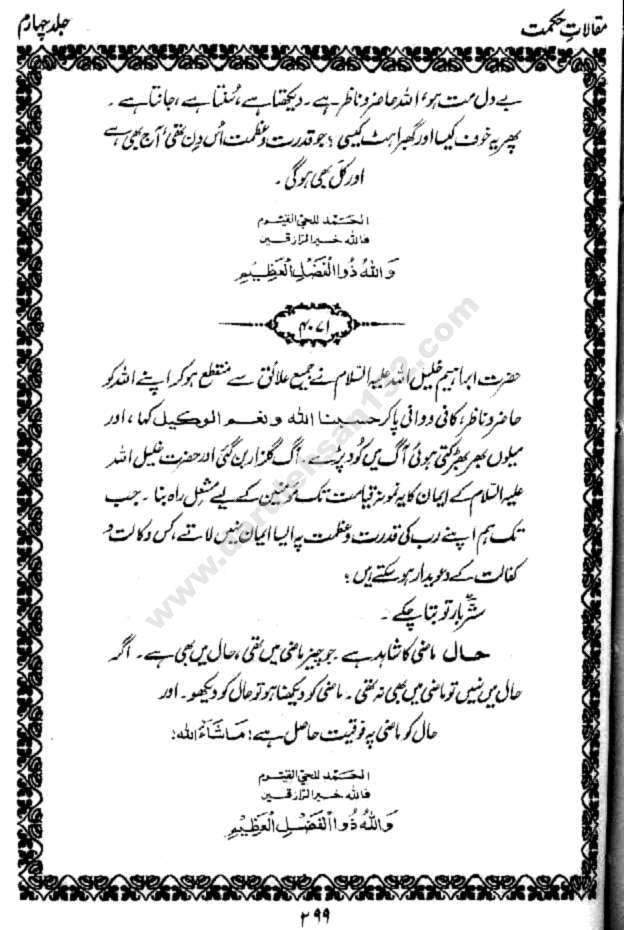 مقالاتِ حکمت
جلد چہارم
بے دل مت ہو، اللہ حاضر و ناظر ہے۔ دیکھتا ہے، سُنتا ہے، جانتا ہے۔
پھر یہ خوف کیسا اور گھبراہٹ کیسی؛ جو قدرت و عظمت اُس دِن تھی، آج بھی ہے
اور کل بھی ہوگی۔
الحمد للحی القیوم
فاللہ خیر الرازقین
وَاللهُ ذُوالْفَضْلِ الْعَظِيْمِ
۴۰۷۱
حضرت ابراہیم خلیل اللہ علیہ السّلام نے جمیع علائق سے منقطع ہو کر اپنے اللہ کو
حاضر و ناظر، کافی و وافی پا کر حسبنا الله و نعم الوکیل کہا، اور
میلوں بھر بھڑکتی ہوئی آگ میں کود پڑے۔ آگ گلزار بن گئی اور حضرت خلیل اللہ
علیہ السّلام کے ایمان کا یہ نمونہ قیامت تک مؤمنین کے لیے مشعلِ راہ بنا۔ جب
تک ہم اپنے رب کی قدرت و عظمت پہ ایسا ایمان نہیں لاتے، کس وکالت و
کفالت کے دعویدار ہو سکتے ہیں؛
ستّر بار تو بتا چکے۔
حال ماضی کا شاہد ہے۔ جو چیز ماضی میں تھی، حال میں بھی ہے۔ اگر
حال میں نہیں تو ماضی میں بھی نہ تھی۔ ماضی کو دیکھنا ہو تو حال کو دیکھو۔ اور
حال کو ماضی پہ فوقیت حاصل ہے؛ مَا شَاءَ اللہ؛
الحمد للحی القیوم
فاللہ خیر الرازقین
وَاللهُ ذُوالْفَضْلِ الْعَظِيْمِ
۲۹۹
www.darulehsan132.com